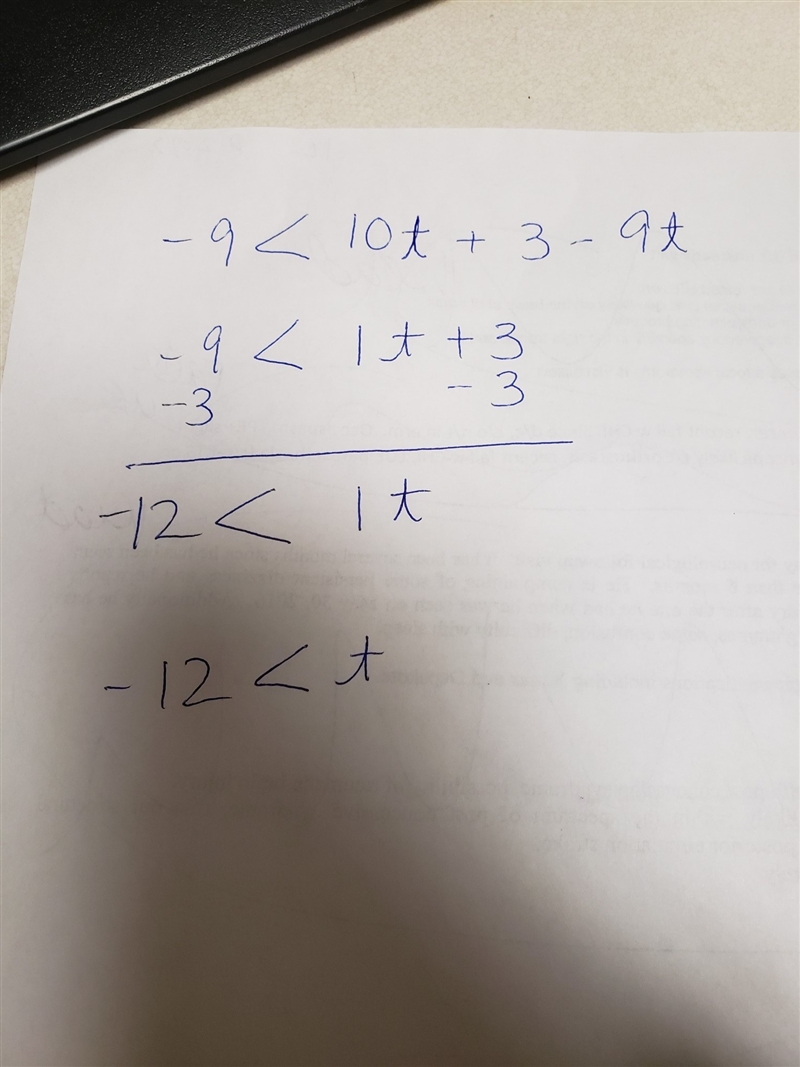 -9 < 10t + 3 - 9t
-9 < 1t + 3
-3 - 3
-12 < 1t
-12 < t